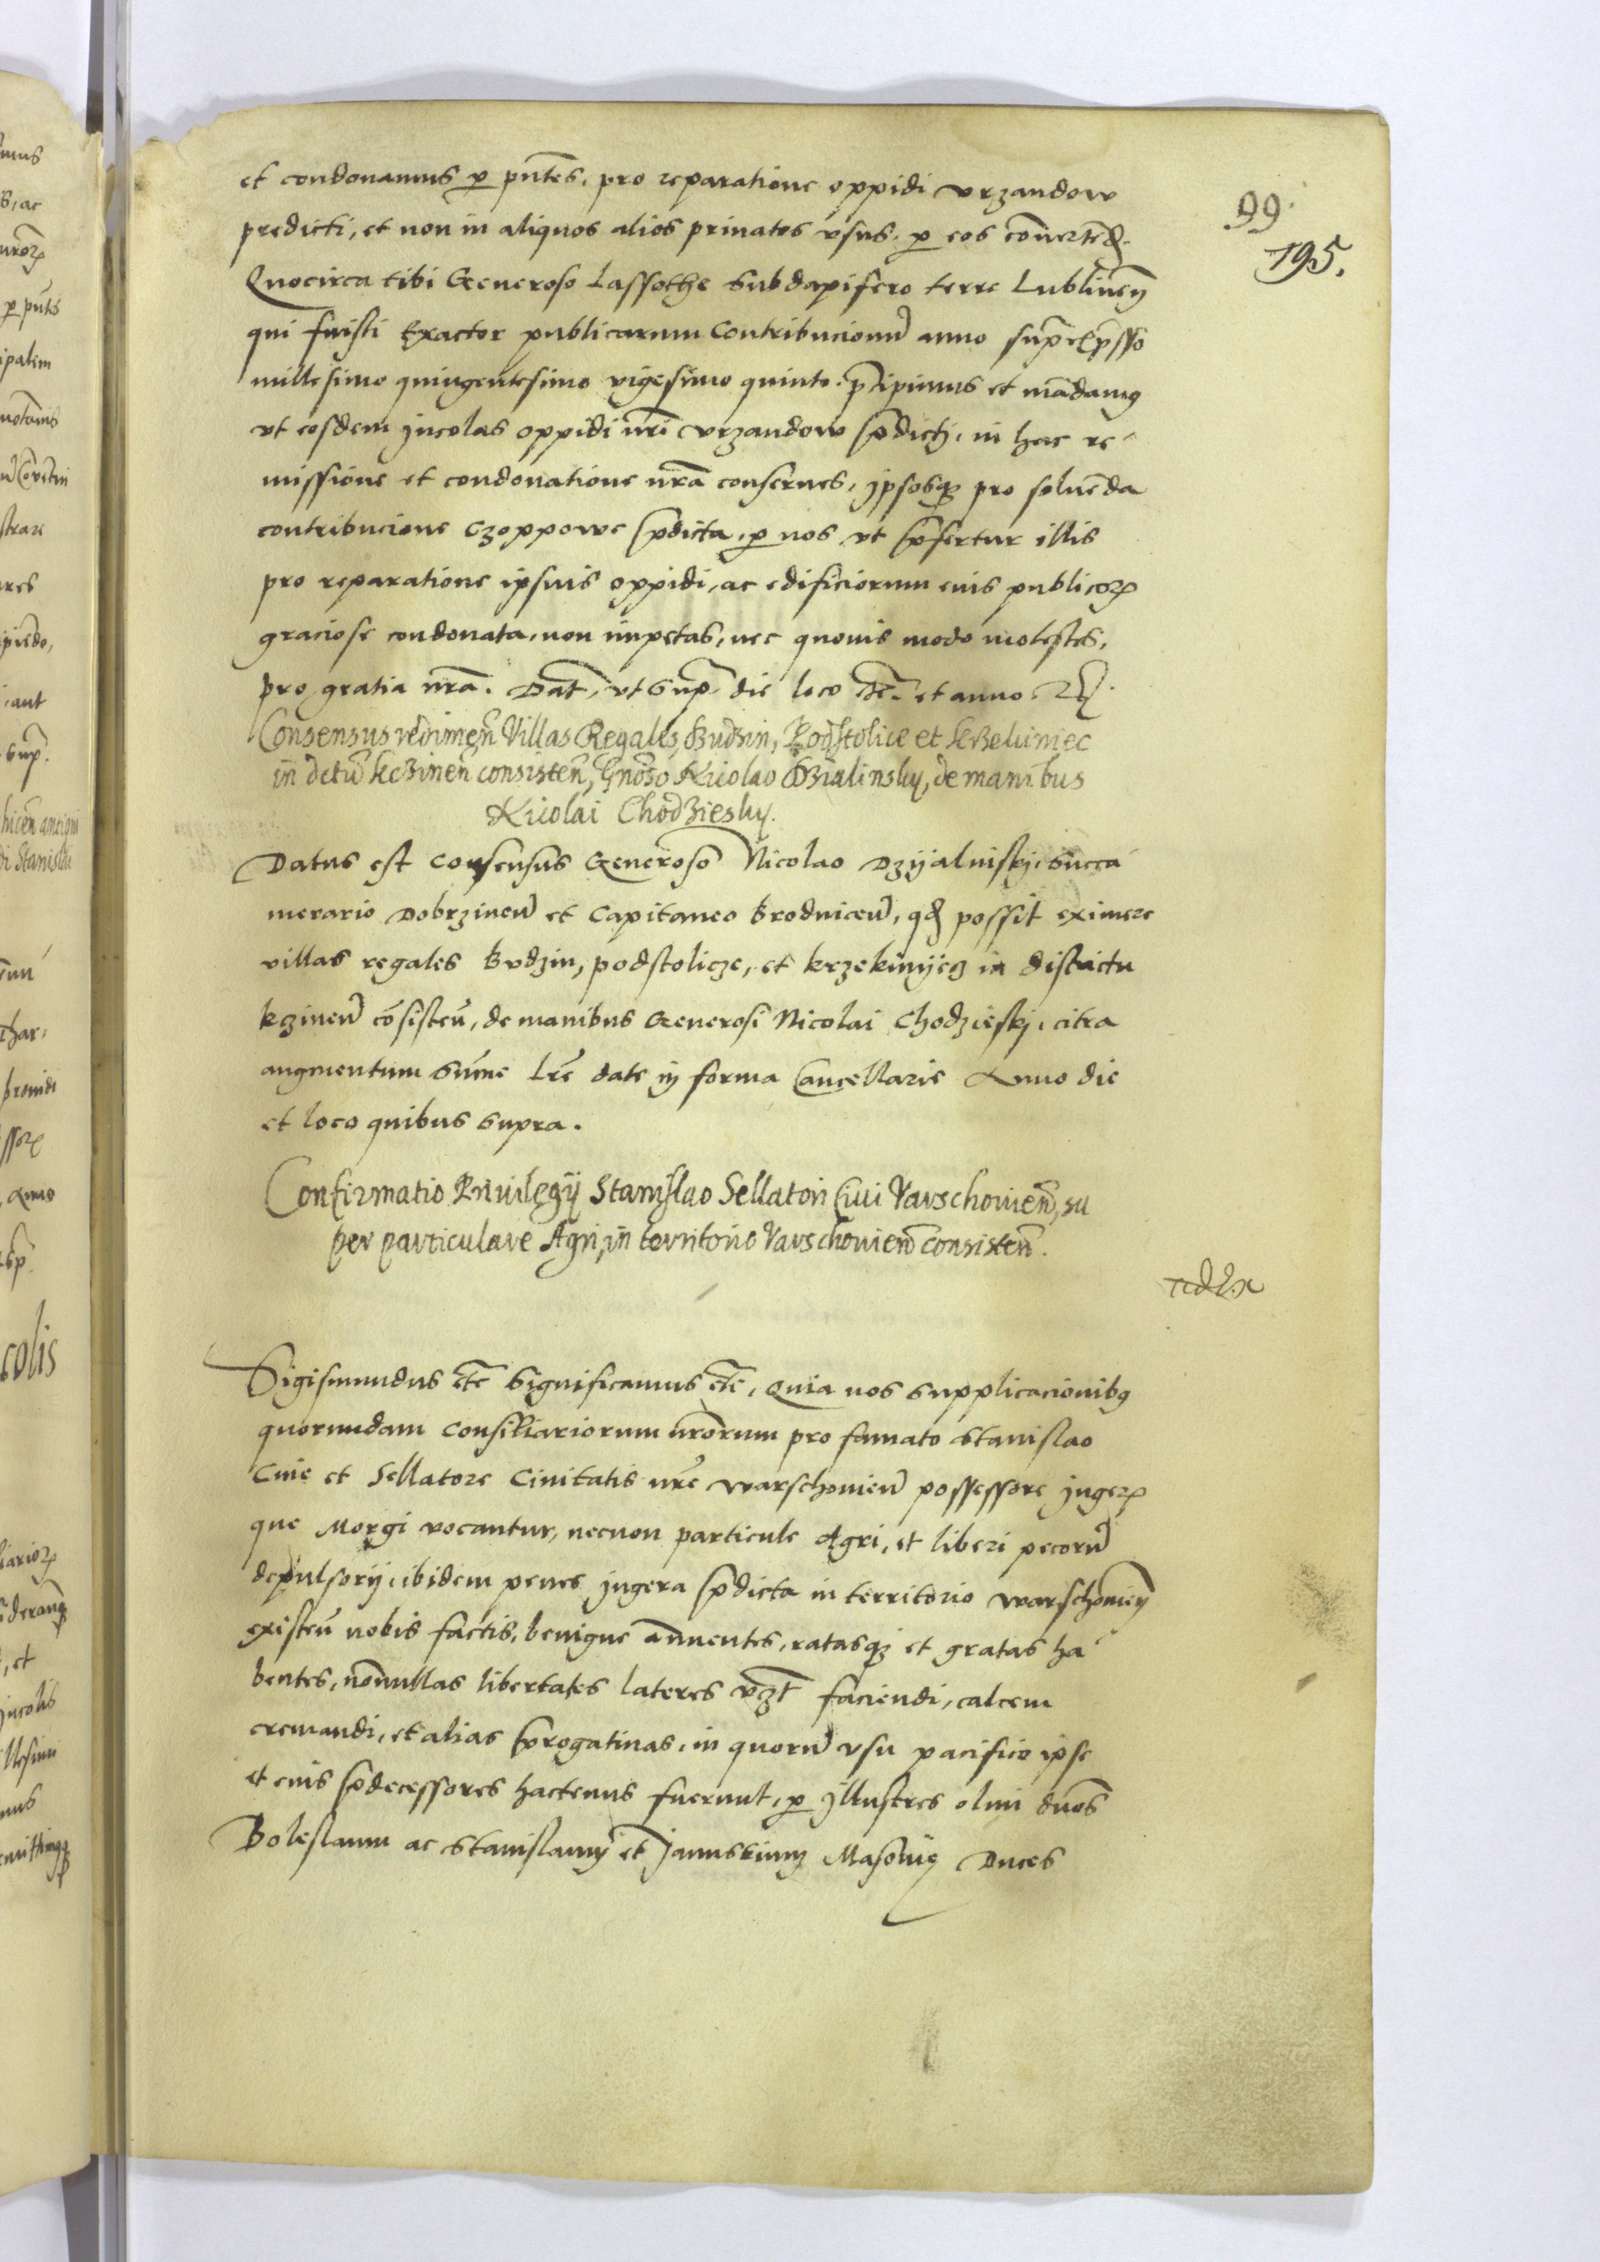 et condonamus p pñtes, pro reparatione oppidi vrzandow
predicti, et non in aliquos alios priuatos vsus, p eos cõuertẽd.
Quocirca tibi Generoso Lassothe Subdapifero terre Lublineñ
qui fuisti Exactor publicarum Contribucionũ anno
millesimo quingentesimo vigesimo quinto. p̃cipimus et mãdamus
vt eosdem Jncolas oppidi nr̃i vrzandow p̃dictj, in hac re-
missione et condonatione nr̃a conserues, jpsosq; pro soluẽda
contribucione Czoppowe p̃dicta, p nos vt p̃fertur illis
pro reparatione ipsius oppidi, ac edificiorum eius publicoꝝ
graciose condonata, non impetas, nec quouis modo molestes,
pro gratia nr̃a. Dat̃, vt Supᵃ die loco et anno
Consensus redimeñ Villas Regales, Budzin, Podstolice et
in detũ kczineñ consisteñ, Gnõso Nicolao Dzialinsky, de manibus
Nicolai Chodziesky.
Datus est Consensus Generoso Nicolao Dzyalinskj, Succa
merario Dobrzineñ et Capitaneo Brodniceñ, qd possit eximere
villas regales Budzin, podstolicze, et krzekinyecz in districtu
kczineñ cõsisteñ, de manibus Generosi Nicolai Chodzieskj, citra
augmentum Sum̃e Lr̃e date in forma Cancellarie Anno die
et loco quibus supra.
Confirmatio Priuilegij Stanislao Sellatori Ciui Varschouieñ, su
per particulare Agri, in territorio Varschouieñ consisteñ.
Sigismundus etc̃ Significamus etc̃, Quia nos supplicacionibus
quorundam Consiliariorum nr̃orum pro famato Stanislao
Ciue et Sellatore Ciuitatis nr̃e warschouieñ possessore jugeꝝ
que Morgi vocantur, necnon particule Agri, et liberi pecorũ
depulsorij, ibidem penes jugera p̃dicta in territorio warschouieñ
existeñ nobis factis, benigne annuentes, ratasq; et gratas ha
bentes, nõnullas libertates lateres vzt faciendi, calcem
cremandi, et alias p̃rogatiuas, in quorũ vsu pacifico ipse
et eius p̃decessores hactenus fuerunt, p jllustres olim duces
Boleslaum ac Stanislaum et Janussium Masouie Duces
99.
195.